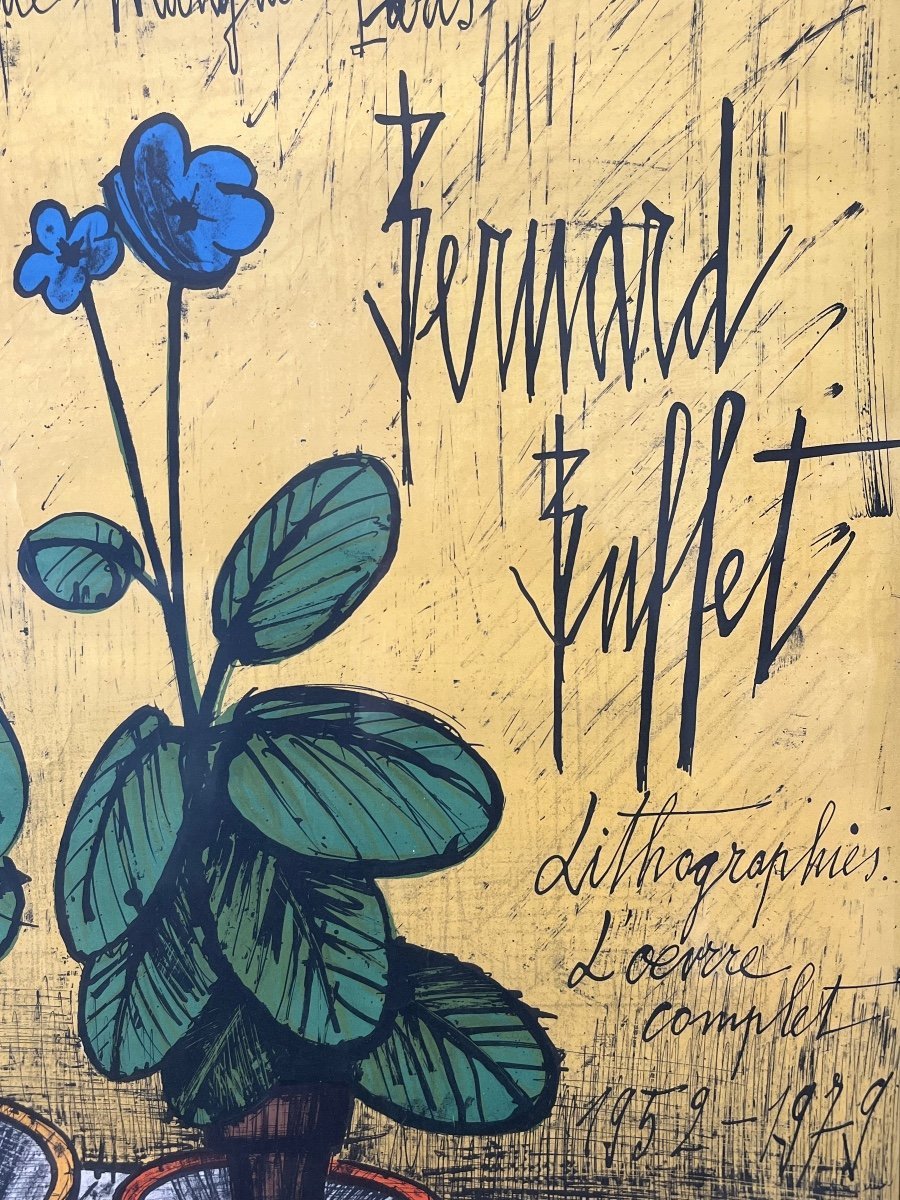 Paris
Bernard
Buffet
Lithographies.
L'oevrre
complet
1952-1979